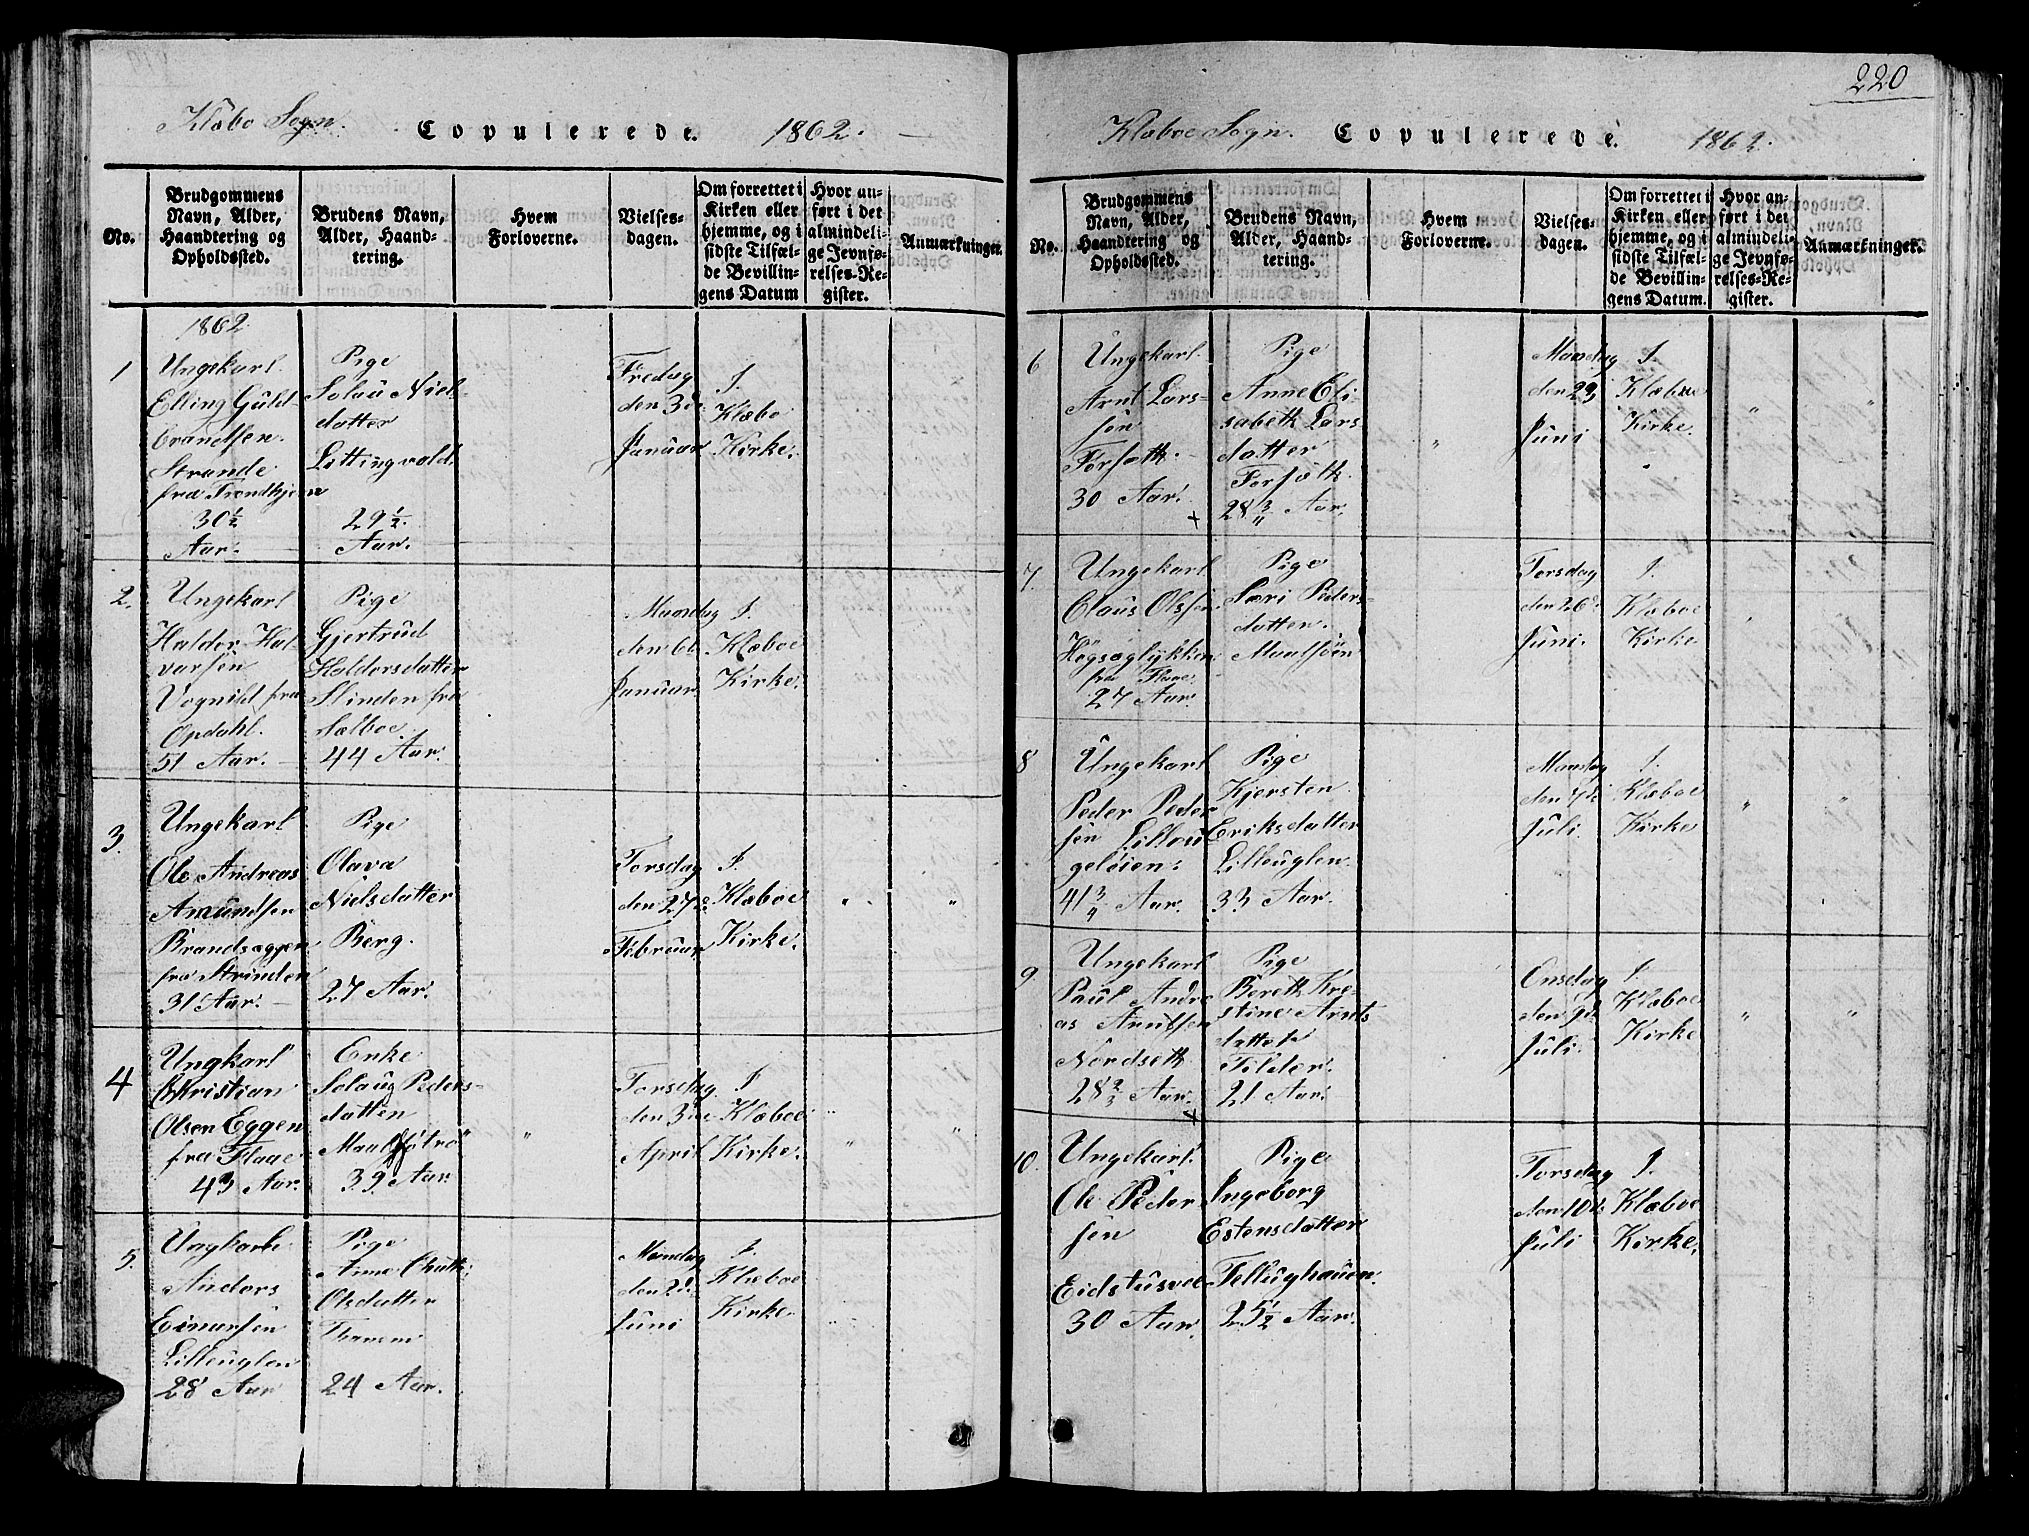 220
Klæbo Sogn.
Copulerede.
1862.
No.
Brudgommens
Navn, Alder,
Haandtering og
Opholdssted.
Brudens Navn,
Alder, Haand-
tering.
Hvem
Forloverne.
Vielses-
dagen.
Om forrettet i
Kirken eller
hjemme, og i
sidste Tilfæl-
de Bevillin-
gens Datum
Hvor an-
ført i det
almindeli-
ge Jevnfø-
relses-Re-
gister.
Anmærkninger.
1862
1
Ungekarl
Elling Guld-
brandsen
Strande
fra Trondhjem
30½
Aar.
Pige
Solau Niels-
datter
Littingvold
29½
Aar.
Fredag
den 3de
Januar
I.
Klæbo
Kirke.
2.
Ungekarl
Haldor Hal-
varsen
Vognild fra
Opdahl.
51 Aar.
Pige
Gjertrud
Haldorsdatter
Slinden fra
Sælboe
44 Aar.
Mandag
den 6te
Januar
I.
Klæboe
Kirke.
3.
Ungekarl
Ole Andreas
Amundsen
Brandsæggen
fra Strinden
31 Aar.
Pige
Olava
Nielsdatter
Berg.
27 Aar.
Torsdag
den 27de
Februar
I.
Klæboe
Kirke.
" "
4
Ungkarl
Christian
Olsen Eggen
fra Flaae
43 Aar.
Enke
Solaug Peders-
datter
39 Aar.
"
Torsdag
den 3die
April
I
Klæboe
Kirke.
" "
5.
Ungkarl
Anders
Einarsen
Lilleuglen
28 Aar
Pige
Anne
Olsdatter
24 Aar.
Mandag
den 2de
Juni
I.
Klæboe
Kirke.
Klæboe Sogn.
Copulerede.
1862.
No.
Brudgommens
Navn, Alder,
Haandtering og
Opholdssted.
Brudens Navn,
Alder, Haand-
tering.
Hvem
Forloverne.
Vielses-
dagen.
Om forrettet i
Kirken eller
hjemme, og i
sidste Tilfæl-
de Bevillin-
gens Datum.
Hvor an-
ført i det
almindeli-
ge Jevnfø-
relses-Re-
gister.
Anmærkninger.
6
Ungekarl.
Arnt Lars-
sen
Forsæth.
30 Aar.
Pige
Anne Eli-
sabeth Lars
datter
Forsæth.
28 Aar.
"
Mandag
den 23
Juni
I.
Klæboe
Kirke.
" "
7.
Ungekarl
Claus Olssen
fra Flaae.
27 Aar.
Pige
Peders-
datter.
Maalsøen
Torsdag
den 26de
Juni.
I.
Klæboe
Kirke
"
8
Ungekarl
Peder Peder
sen
41¾ Aar.
Pige
Kjersten
Eriksdatter
Lilleuglen.
33 Aar.
Mandag
den 7de
Juli.
I.
Klæboe
Kirke
" "
9
Ungekarl
Paul Andre
as Arntsen
Nordseth
28⅔ Aar.
Pige
Bereth Kre-
stine Arnts
datter
Tilder.
21 Aar.
Onsdag
den 9de
Juli.
I.
Klæboe
Kirke
" "
10.
Ungekarl.
Ole Peder
sen
Eidstusvee
30 Aar.
Pige
Ingeborg
Estensdatter
Tellughauen.
25½ Aar.
Torsdag
den 10de
Juli
I.
Klæboe
Kirke.